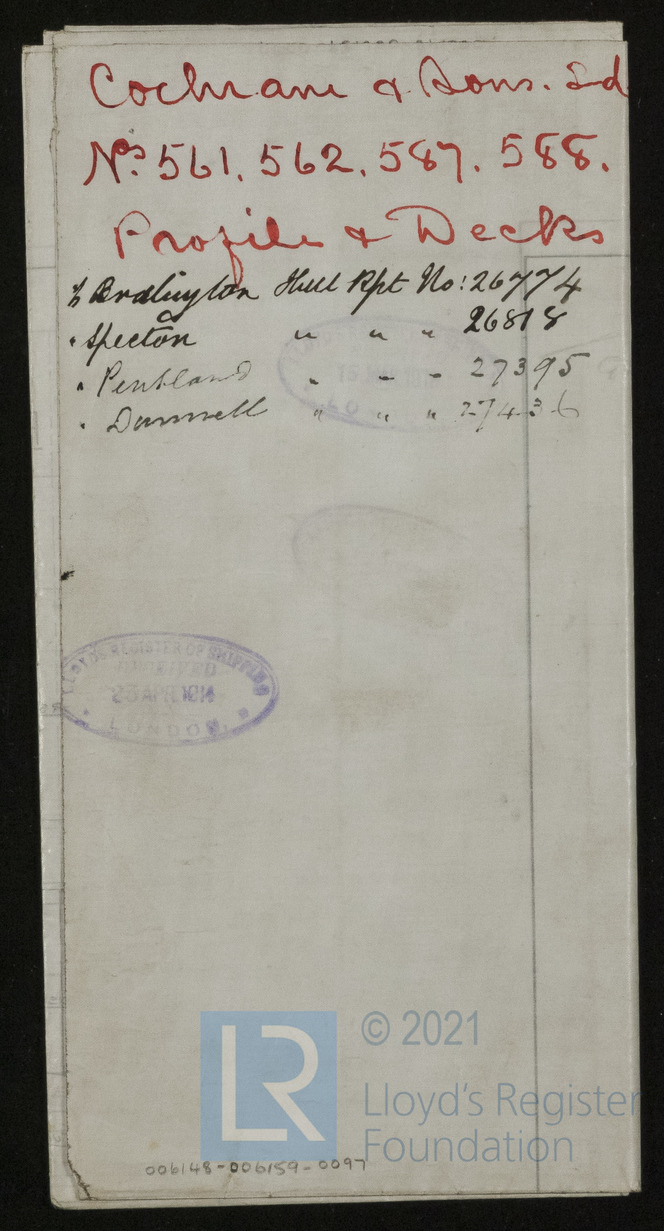 Cochrane & Sons. Ld
Nos. 561. 562. 587. 588.
Profile & Decks
Bridlington Hull Rpt No: 26774
" Specton " " " 26818
" Pentland " " " 27395
" " " " 27436
LLOYD'S REGISTER OF SHIPPING
RECEIVED
23 APR 1914
LONDON
LR
© 2021
Lloyd's Register
Foundation
006148-006159-0097